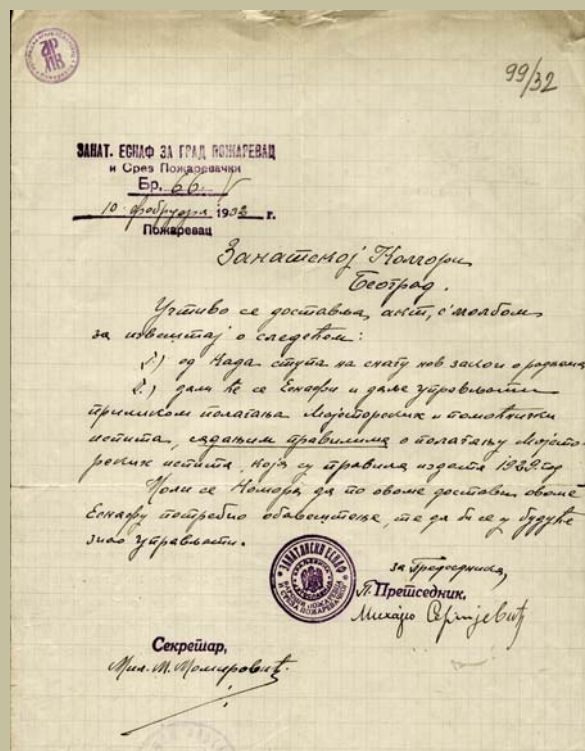 99/32
ЗАНАТ. ЕСНАФ ЗА ГРАД ПОЖАРЕВАЦ
и Срез Пожаревачки
Бр. 66
10 фебруара 1932 г.
Пожаревац
Занатској Комори
Београд.
Учтиво се доставља акт, с молбом
за извештај о следећем:
1.) од када ступа на снагу нов закон о радњама
2.) дали ће се Еснафи и даље управљати
приликом полагања Мајсторских и помоћнички
испита, садањим правилима о полагању Мајсто-
рских испита, која су правила издата 1929. год
Моли се Комора да по овоме достави овоме
Еснафу потребно обавештење, те да би се у будуће
знао управљати.
за Председника,
П. Претседник,
Михајло
ЗАНАТСКИ ЕСНАФ
Секретар,
Мил. М. Момировић.